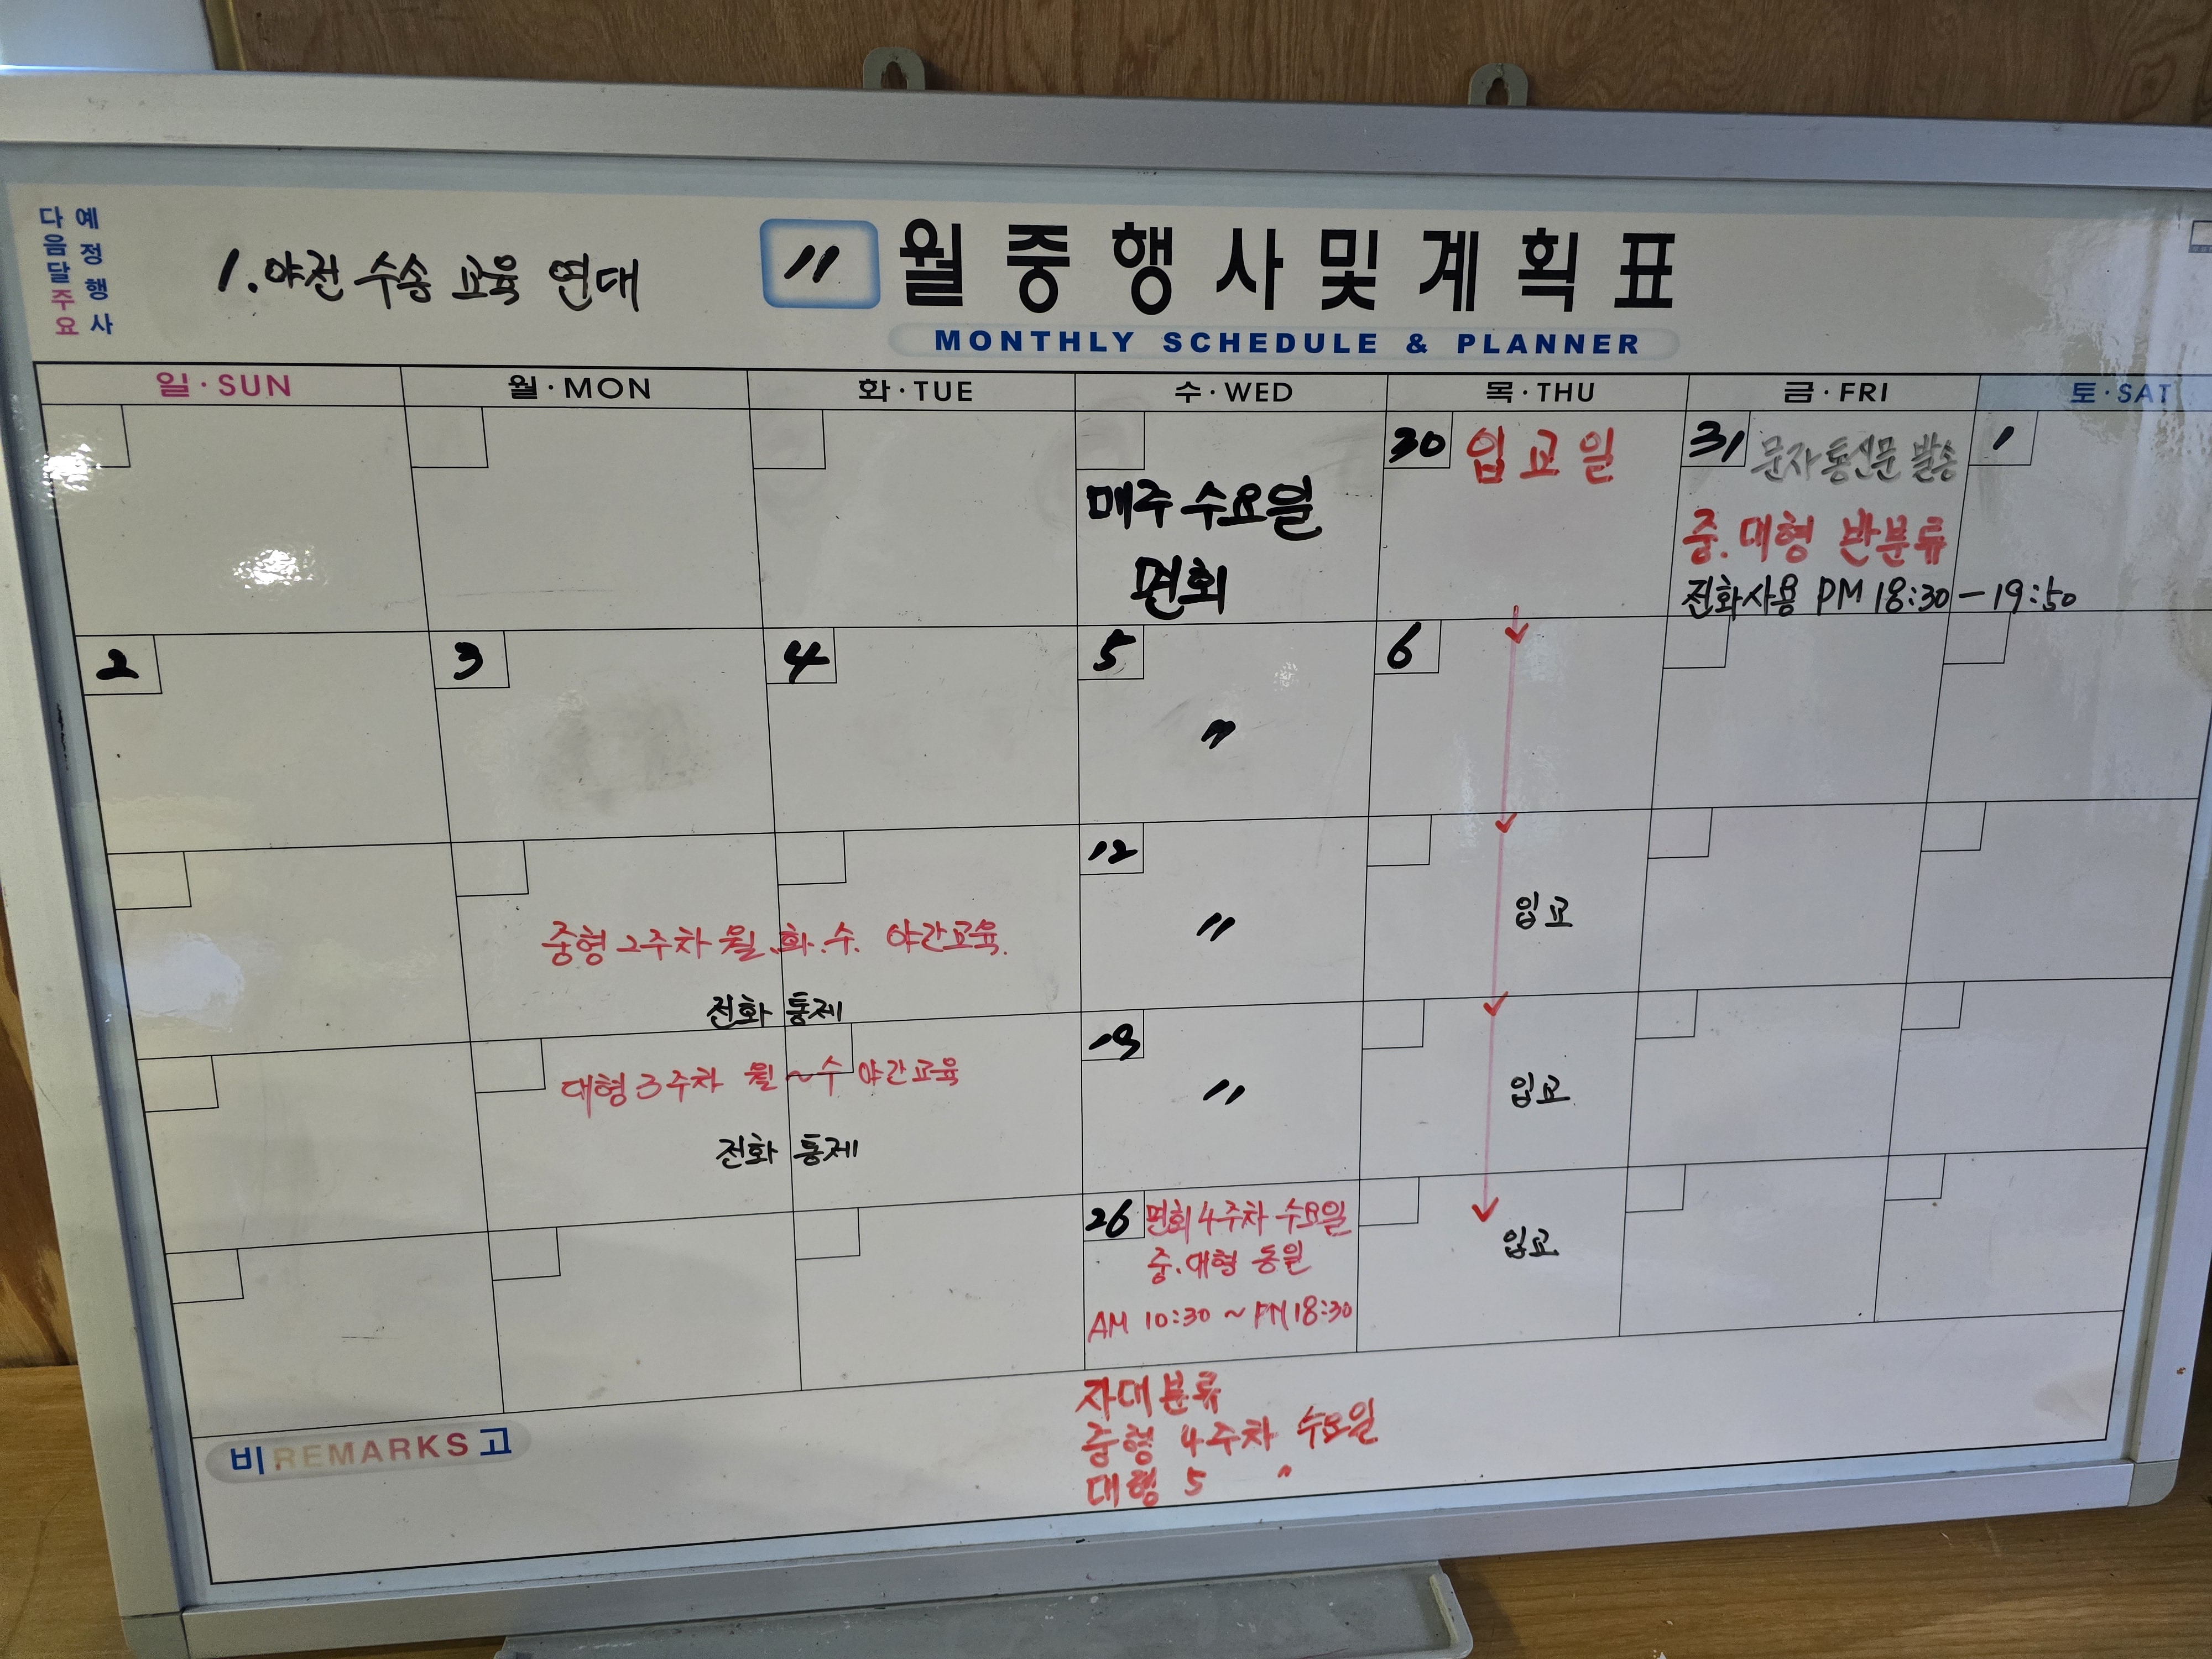 다음달주요
예정행사
1. 야전 수송 교육 연대
11 월중행사및계획표
MONTHLY SCHEDULE & PLANNER
일·SUN 월·MON 화·TUE 수·WED 목·THU 금·FRI 토·SAT
매주 수요일
면회
30 입교일
31 문자통신문 발송
중.대형 반분류
전화사용 PM 18:30 - 19:50
1
2 3 4 5 6
〃
12
중형 2주차 월.화.수. 야간교육.
〃
입교
전화 통제
19
대형 3주차 월~수 야간교육
〃
입교
전화 통제
26 면회 4주차 수요일
중.대형 동일
입교
AM 10:30 ~ PM 18:30
비 REMARKS 고
자대분류
중형 4주차 수요일
대형 5 〃